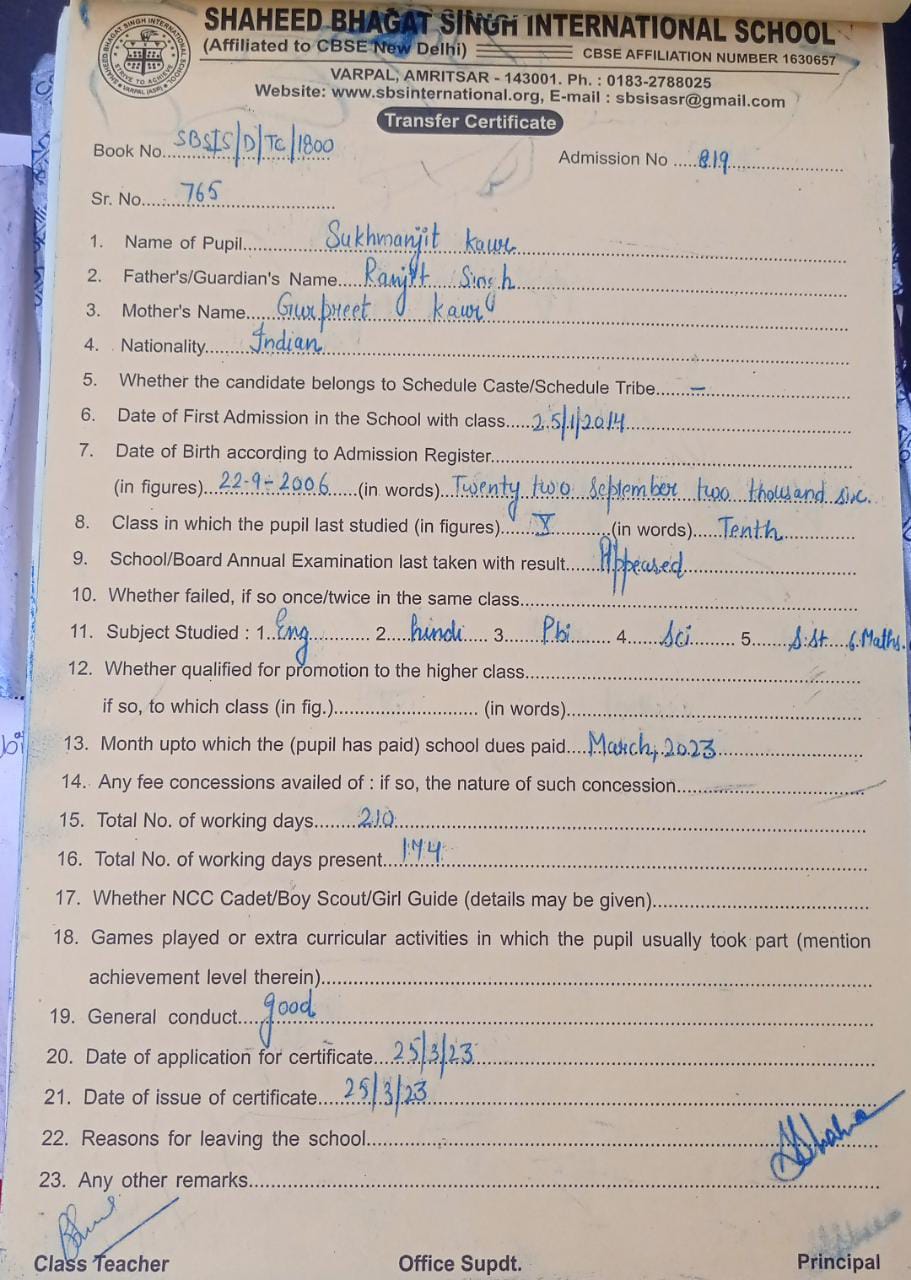 SHAHEED BHAGAT SINGH INTERNATIONAL SCHOOL
(Affiliated to CBSE New Delhi) CBSE AFFILIATION NUMBER 1630657
VARPAL, AMRITSAR - 143001. Ph. : 0183-2788025
Website: www.sbsinternational.org, E-mail : sbsisasr@gmail.com
SHAHEED BHAGAT SINGH INTERNATIONAL SCHOOL
STRIVE TO ACHIEVE
VARPAL (ASR)
Transfer Certificate
Book No. SBSIS/D/TC/1800 Admission No 819
Sr. No. 765
1. Name of Pupil Sukhmanjit kaur
2. Father's/Guardian's Name Ranjit Singh
3. Mother's Name Gurpreet kaur
4. Nationality Indian
5. Whether the candidate belongs to Schedule Caste/Schedule Tribe –
6. Date of First Admission in the School with class 25/1/2014
7. Date of Birth according to Admission Register
(in figures) 22-9-2006 (in words) Twenty two September two thousand six.
8. Class in which the pupil last studied (in figures) X (in words) Tenth
9. School/Board Annual Examination last taken with result Appeared
10. Whether failed, if so once/twice in the same class
11. Subject Studied : 1. Eng 2. hindi 3. Pbi 4. Sci 5. S.St 6. Maths.
12. Whether qualified for promotion to the higher class
if so, to which class (in fig.) (in words)
13. Month upto which the (pupil has paid) school dues paid March, 2023
14. Any fee concessions availed of : if so, the nature of such concession
15. Total No. of working days 210
16. Total No. of working days present 174
17. Whether NCC Cadet/Boy Scout/Girl Guide (details may be given)
18. Games played or extra curricular activities in which the pupil usually took part (mention
achievement level therein)
19. General conduct good
20. Date of application for certificate 25/3/23
21. Date of issue of certificate 25/3/23
22. Reasons for leaving the school
23. Any other remarks
Class Teacher Office Supdt. Principal